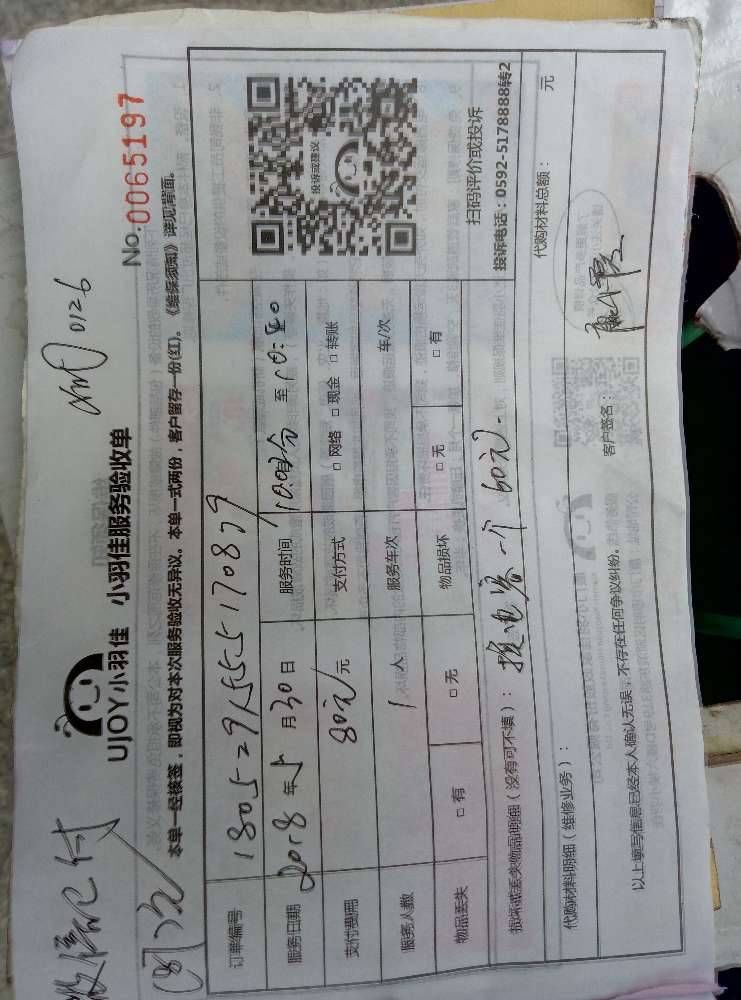 微信已付
0126
UJOY小羽佳 小羽佳服务验收单
No. 0065197
本单一经核签，即视为对本次服务验收无异议。本单一式两份，客户留存一份(红)。《维保须知》详见背面。
订单编号
服务日期 2018 年 5 月 30 日 服务时间 至 10:40
支付费用 80元 元 支付方式 □ 网络 □ 现金 □ 转账
服务人数 1 人 服务车次 车/次
物品丢失 □ 有 □ 无 物品损坏 □ 无 □ 有
投诉或建议
扫码评价或投诉
投诉电话：0592-5178888转2
损坏或丢失物品明细（没有可不填）： 换电容一个 60元.
代购材料明细（维修业务）： 代购材料总额： 元
以上填写信息已经本人确认无误，不存在任何争议纠纷。 客户签名：